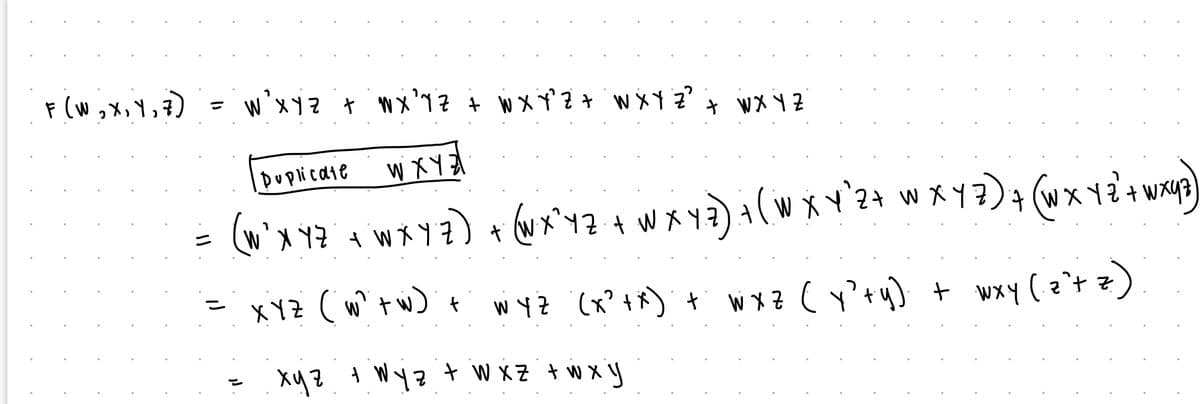 F(W,X,Y,Z) = W'XYZ + WX'YZ + WXY'Z + WXYZ' + WXYZ
Duplicate WXYZ
= (W'XYZ + WXYZ) + (WX'YZ + WXYZ) + (WXY'Z + WXYZ) + (WXYZ' + WXYZ)
= XYZ (W' + W) + WYZ (X' + X) + WXZ (Y' + y) + WXY (Z' + Z)
= XyZ + WyZ + WXZ + WXy